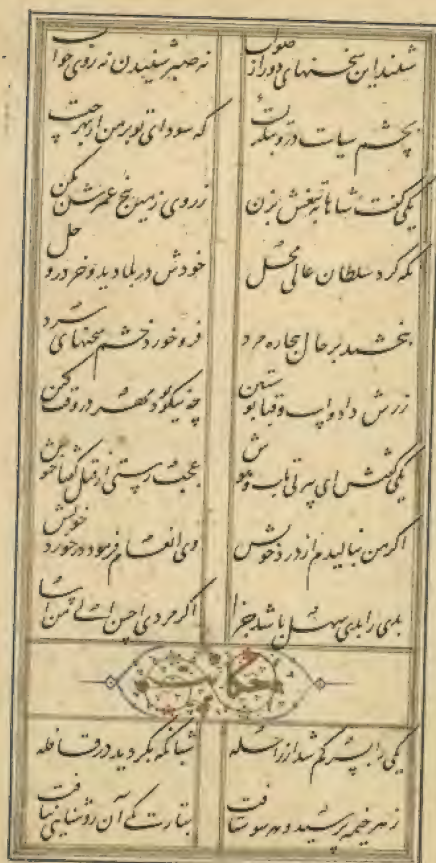 شنید این سخنهای دور از صواب نه صبر شنیدن نه روی جواب
بچشم سیاست درو بنگریست که سودای تو بر من از بهر چیست
یکی گفت شاها به تیغش بزن ز روی زمین بیخ عمرش بکن
نگه کرد سلطان عالی محل خودش در بلا دید و خر در وحل
ببخشید بر حال بیچاره مرد فرو خورد خشم سخنهای سرد
زرش داد و اسب و قبا پوستین چه نیکو بود مهر در وقت کین
یکی گفتش ای پیر بی تاب و هوش عجب رستی از قتل گفتا خموش
اگر من بنالیدم از درد خویش وی انعام فرمود در خورد خویش
بدی را بدی سهل باشد جزا اگر مردی احسن الی من اسا
حکایت
یکی را پسر گم شد از راحله شبانگه بگردید در قافله
ز هر خیمه پرسید و هر سو شتافت بتاریکی آن روشنایی نیافت